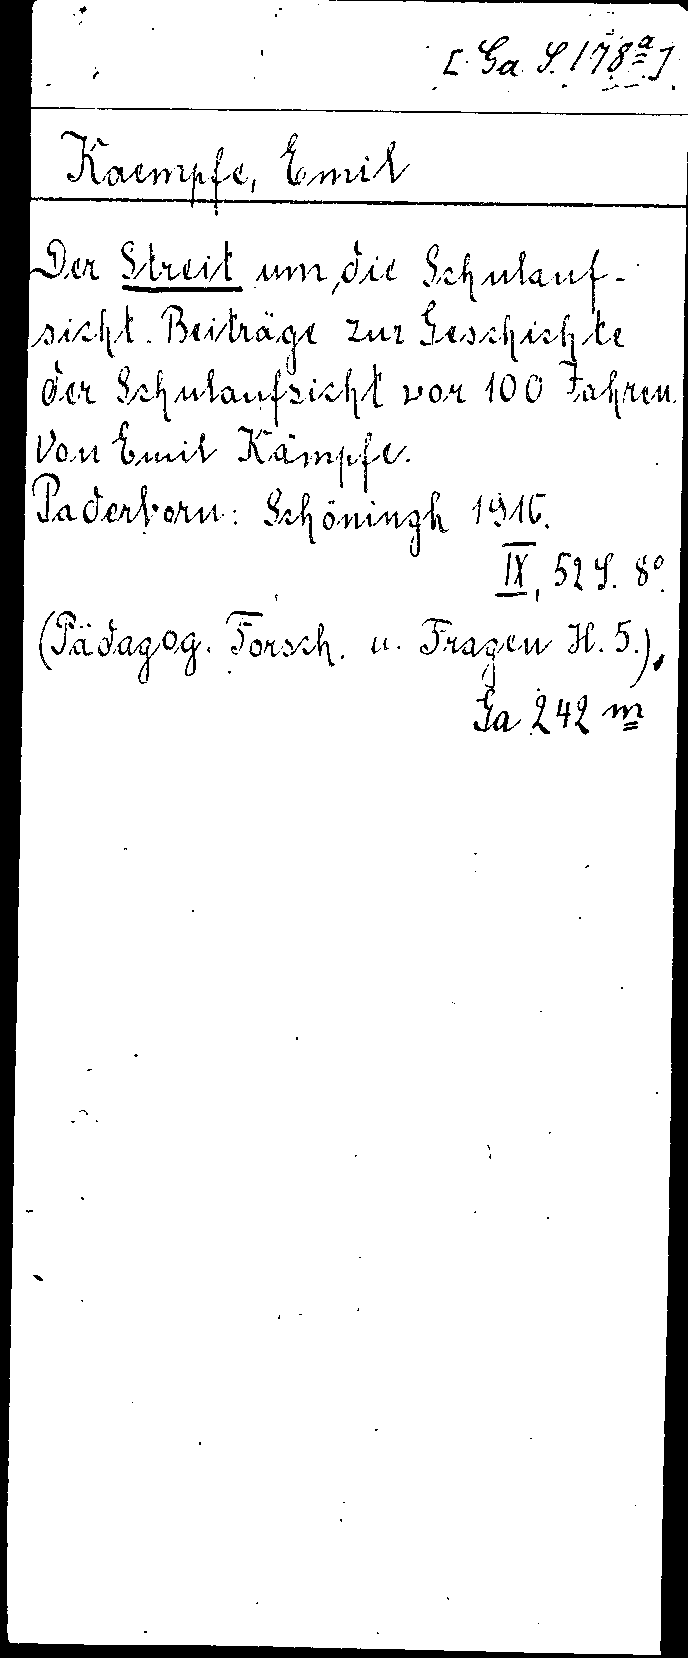 [Ga S. 178a]
Kaempfe, Emil
Der Streit um die Schulauf-
sicht. Beiträge zur Geschichte
der Schulaufsicht vor 100 Jahren.
Von Emil Kämpfe.
Paderborn: Schöningh 1916.
IX, 52 S. 8°.
(Pädagog. Forsch. u. Fragen H. 5.).
Ga 242 m